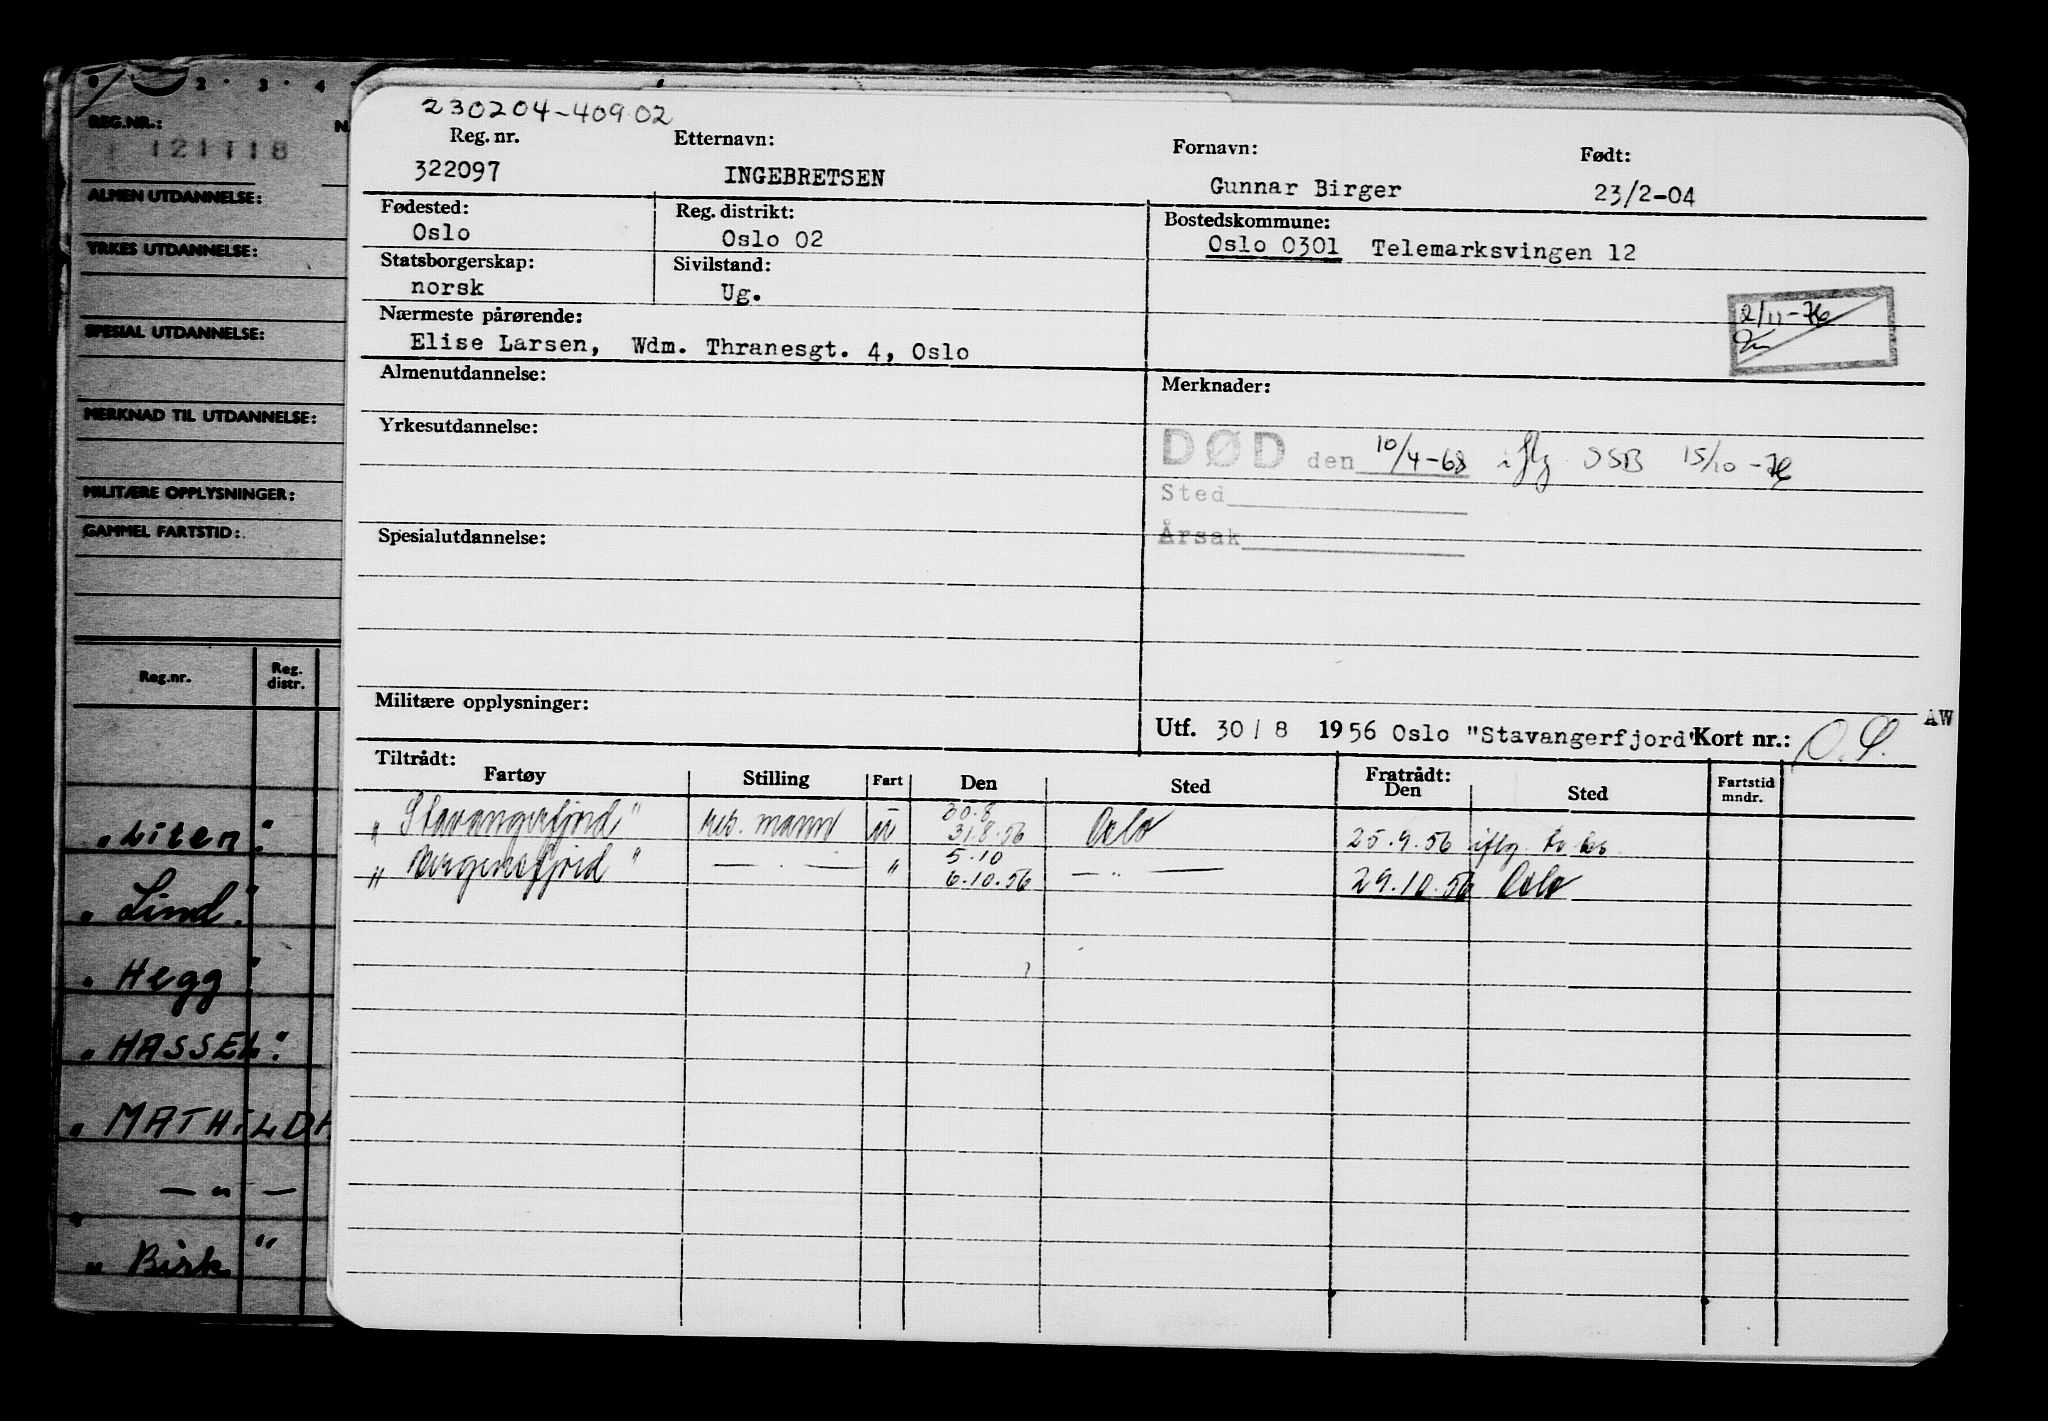 2 · 3 · 4
REG.NR.:
121118
ALMEN UTDANNELSE:
YRKES UTDANNELSE:
SPESIAL UTDANNELSE:
MERKNAD TIL UTDANNELSE:
MILITÆRE OPPLYSNINGER:
GAMMEL FARTSTID:
Reg.nr. Reg. distr.
"Liten"
"Lind"
"Hegg"
"HASSEL"
"MATHILDA
— " —
"Birk"
230204-409.02
Reg. nr. Etternavn: Fornavn: Født:
322097 INGEBRETSEN Gunnar Birger 23/2-04
Fødested: Reg. distrikt: Bostedskommune:
Oslo Oslo 02 Oslo 0301 Telemarksvingen 12
Statsborgerskap: Sivilstand:
norsk Ug.
Nærmeste pårørende:
Elise Larsen, Wdm. Thranesgt. 4, Oslo
2/11-76
Almenutdannelse: Merknader:
Yrkesutdannelse:
DØD den 10/4-68 iflg DSB 15/10-76
Sted
Årsak
Spesialutdannelse:
Militære opplysninger:
AW
Utf. 30/8 1956 Oslo "Stavangerfjord" Kort nr.:
Tiltrådt: Fratrådt:
Fartøy Stilling Fart Den Sted Den Sted Fartstid mndr.
"Stavangerfjord" res. mann u 30.8 31.8.56 Oslo 25.9.56 iflg.
"Bergensfjord" — " — " 5.10 6.10.56 — " — 29.10.56 Oslo